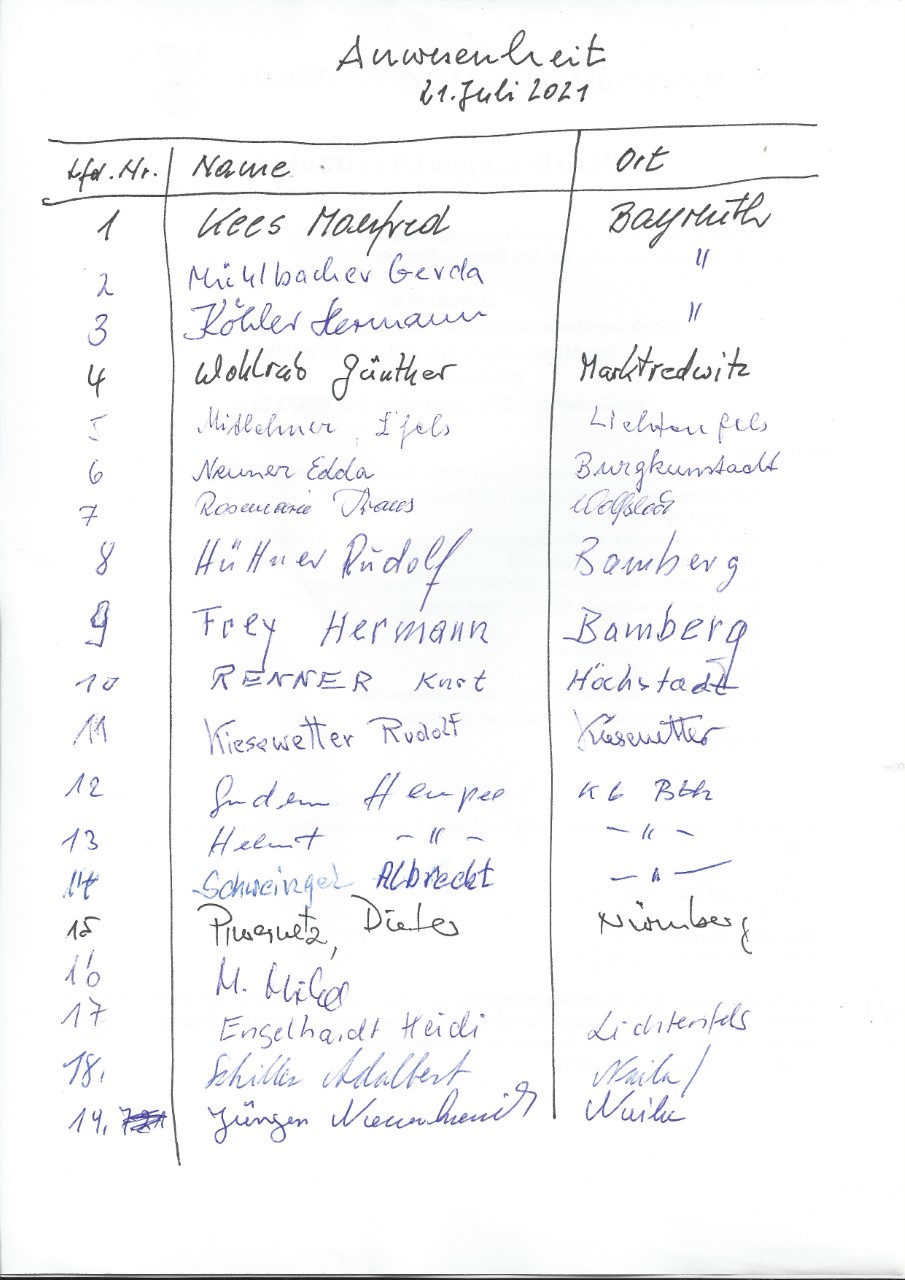 Anwesenheit
21. Juli 2021
Lfd. Nr. Name Ort
1 Kees Manfred Bayreuth
2 Mühlbacher Gerda "
3 Köhler Hermann "
4 Wohlrab Günther Marktredwitz
5 Lichtenfels
6 Neuner Edda Burgkunstadt
7 Rosemarie
8 Hüttner Rudolf Bamberg
9 Frey Hermann Bamberg
10 RENNER Kurt Höchstadt
11 Kiesewetter Rudolf Kiesewetter
12
13 Helmut - " - - " -
14 Albrecht - " -
15 Dieter Nürnberg
16 M.
17 Engelhardt Heidi Lichtenfels
18. Schiller Adalbert Naila
19. Jürgen Naila